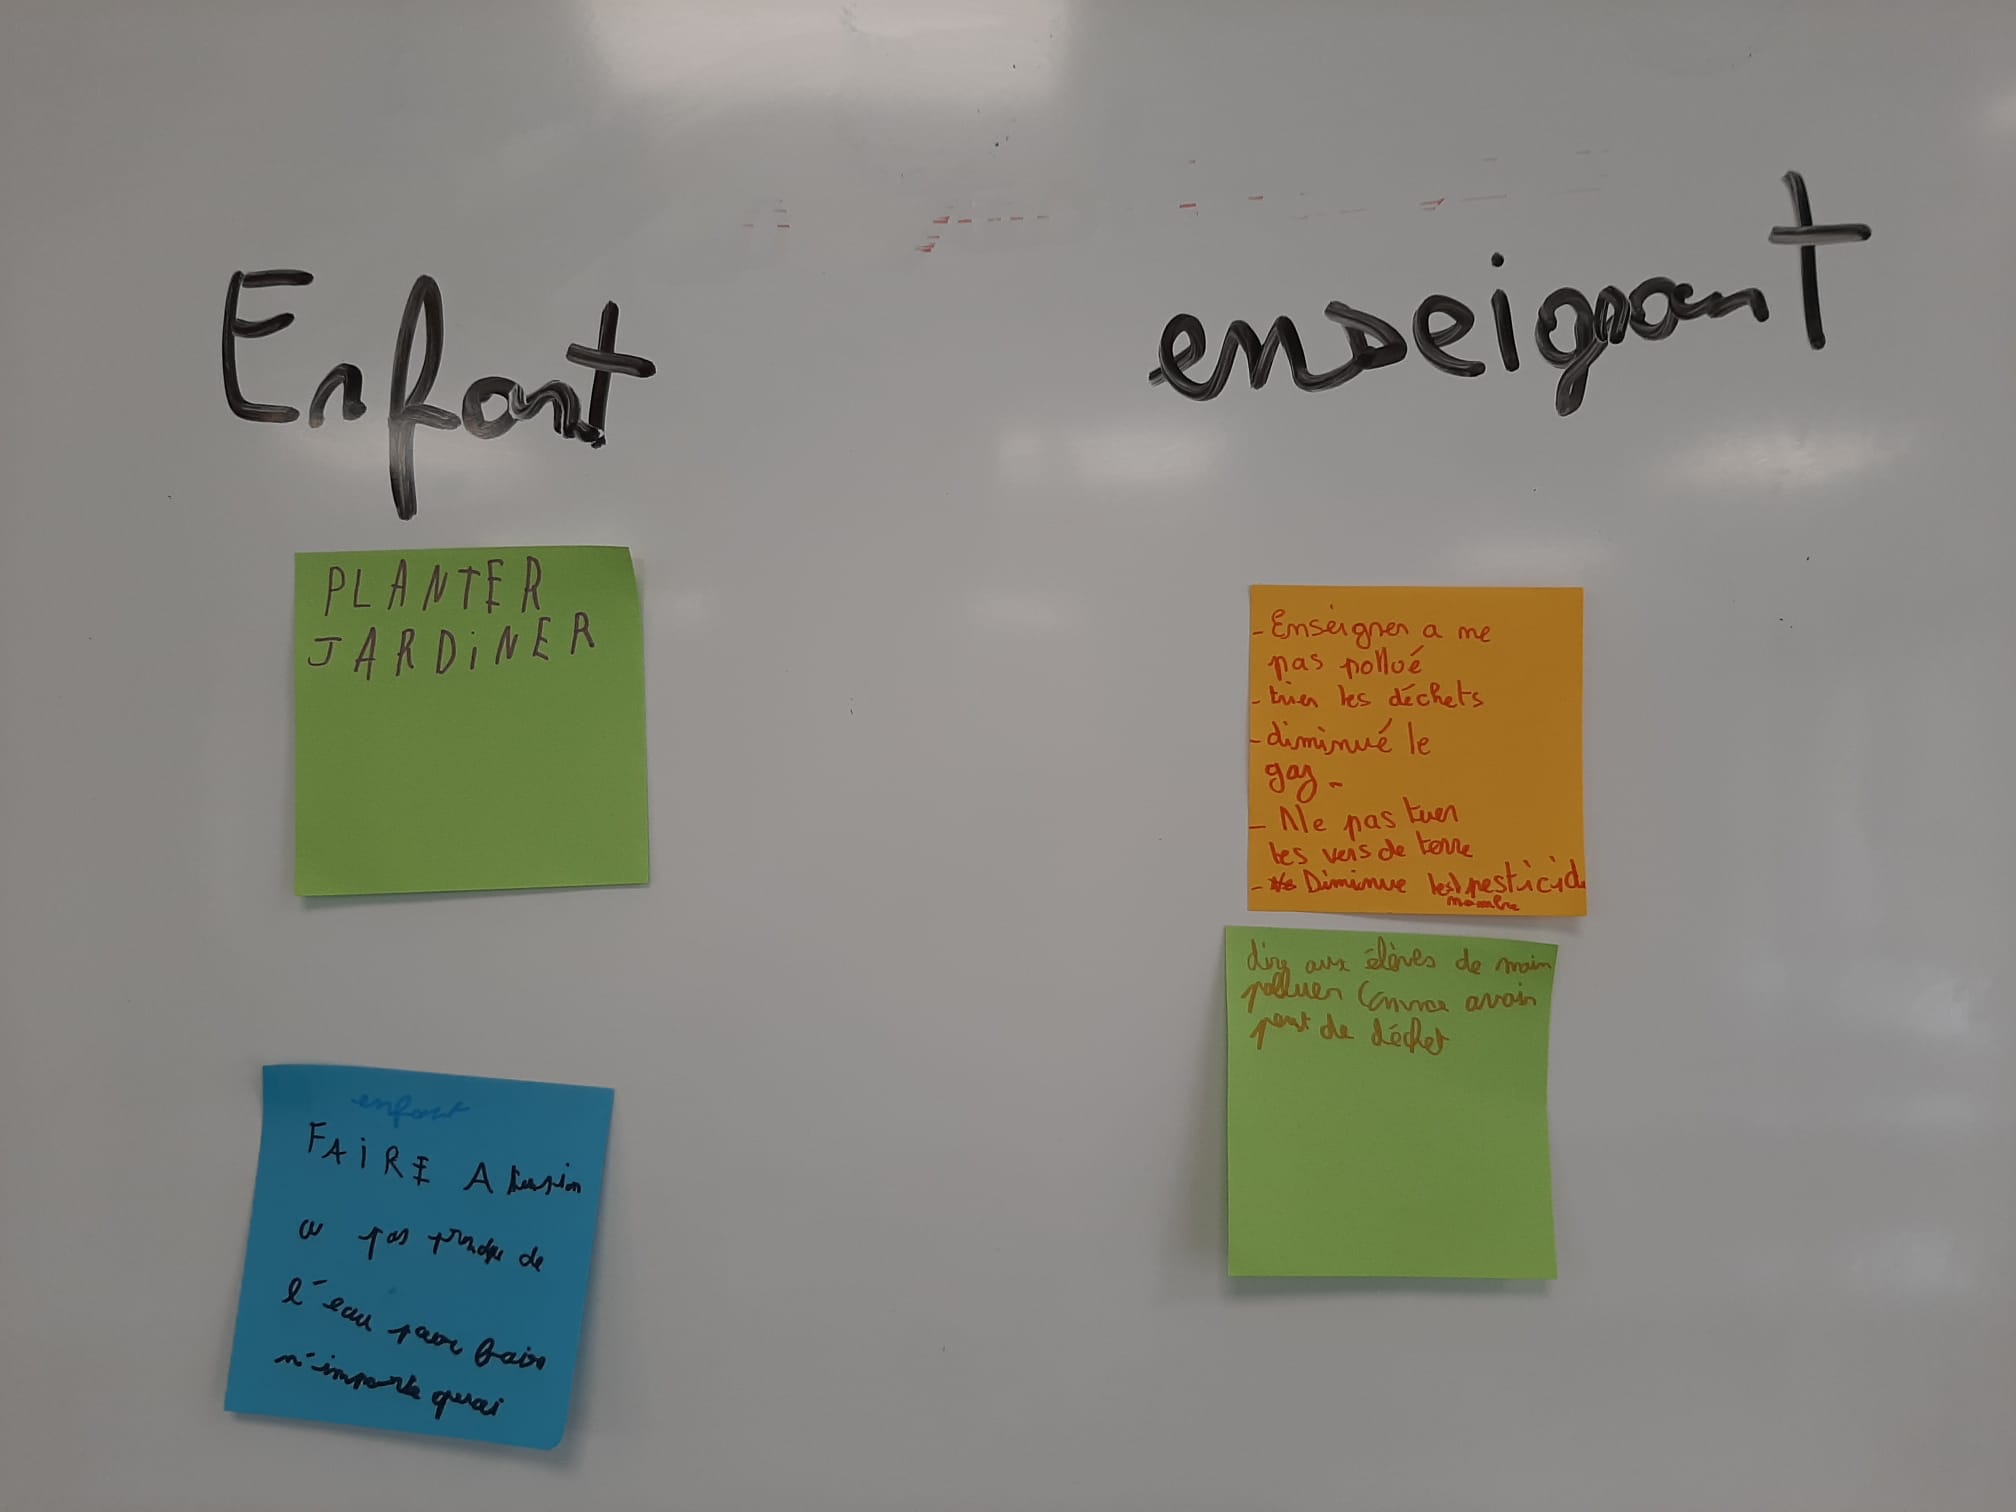 Enfant
PLANTER
JARDiNER
enfant
FAiRE A
a pas prendre de
l'eau pour faire
n'importe quoi
enseignant
- Enseigner a ne
pas pollué
- trier les déchets
- diminué le
gaz -
- Ne pas tuer
les vers de terre
- Diminue les pesticid
nombre
dire aux élèves de main
polluer comme avoir
peut de déchet